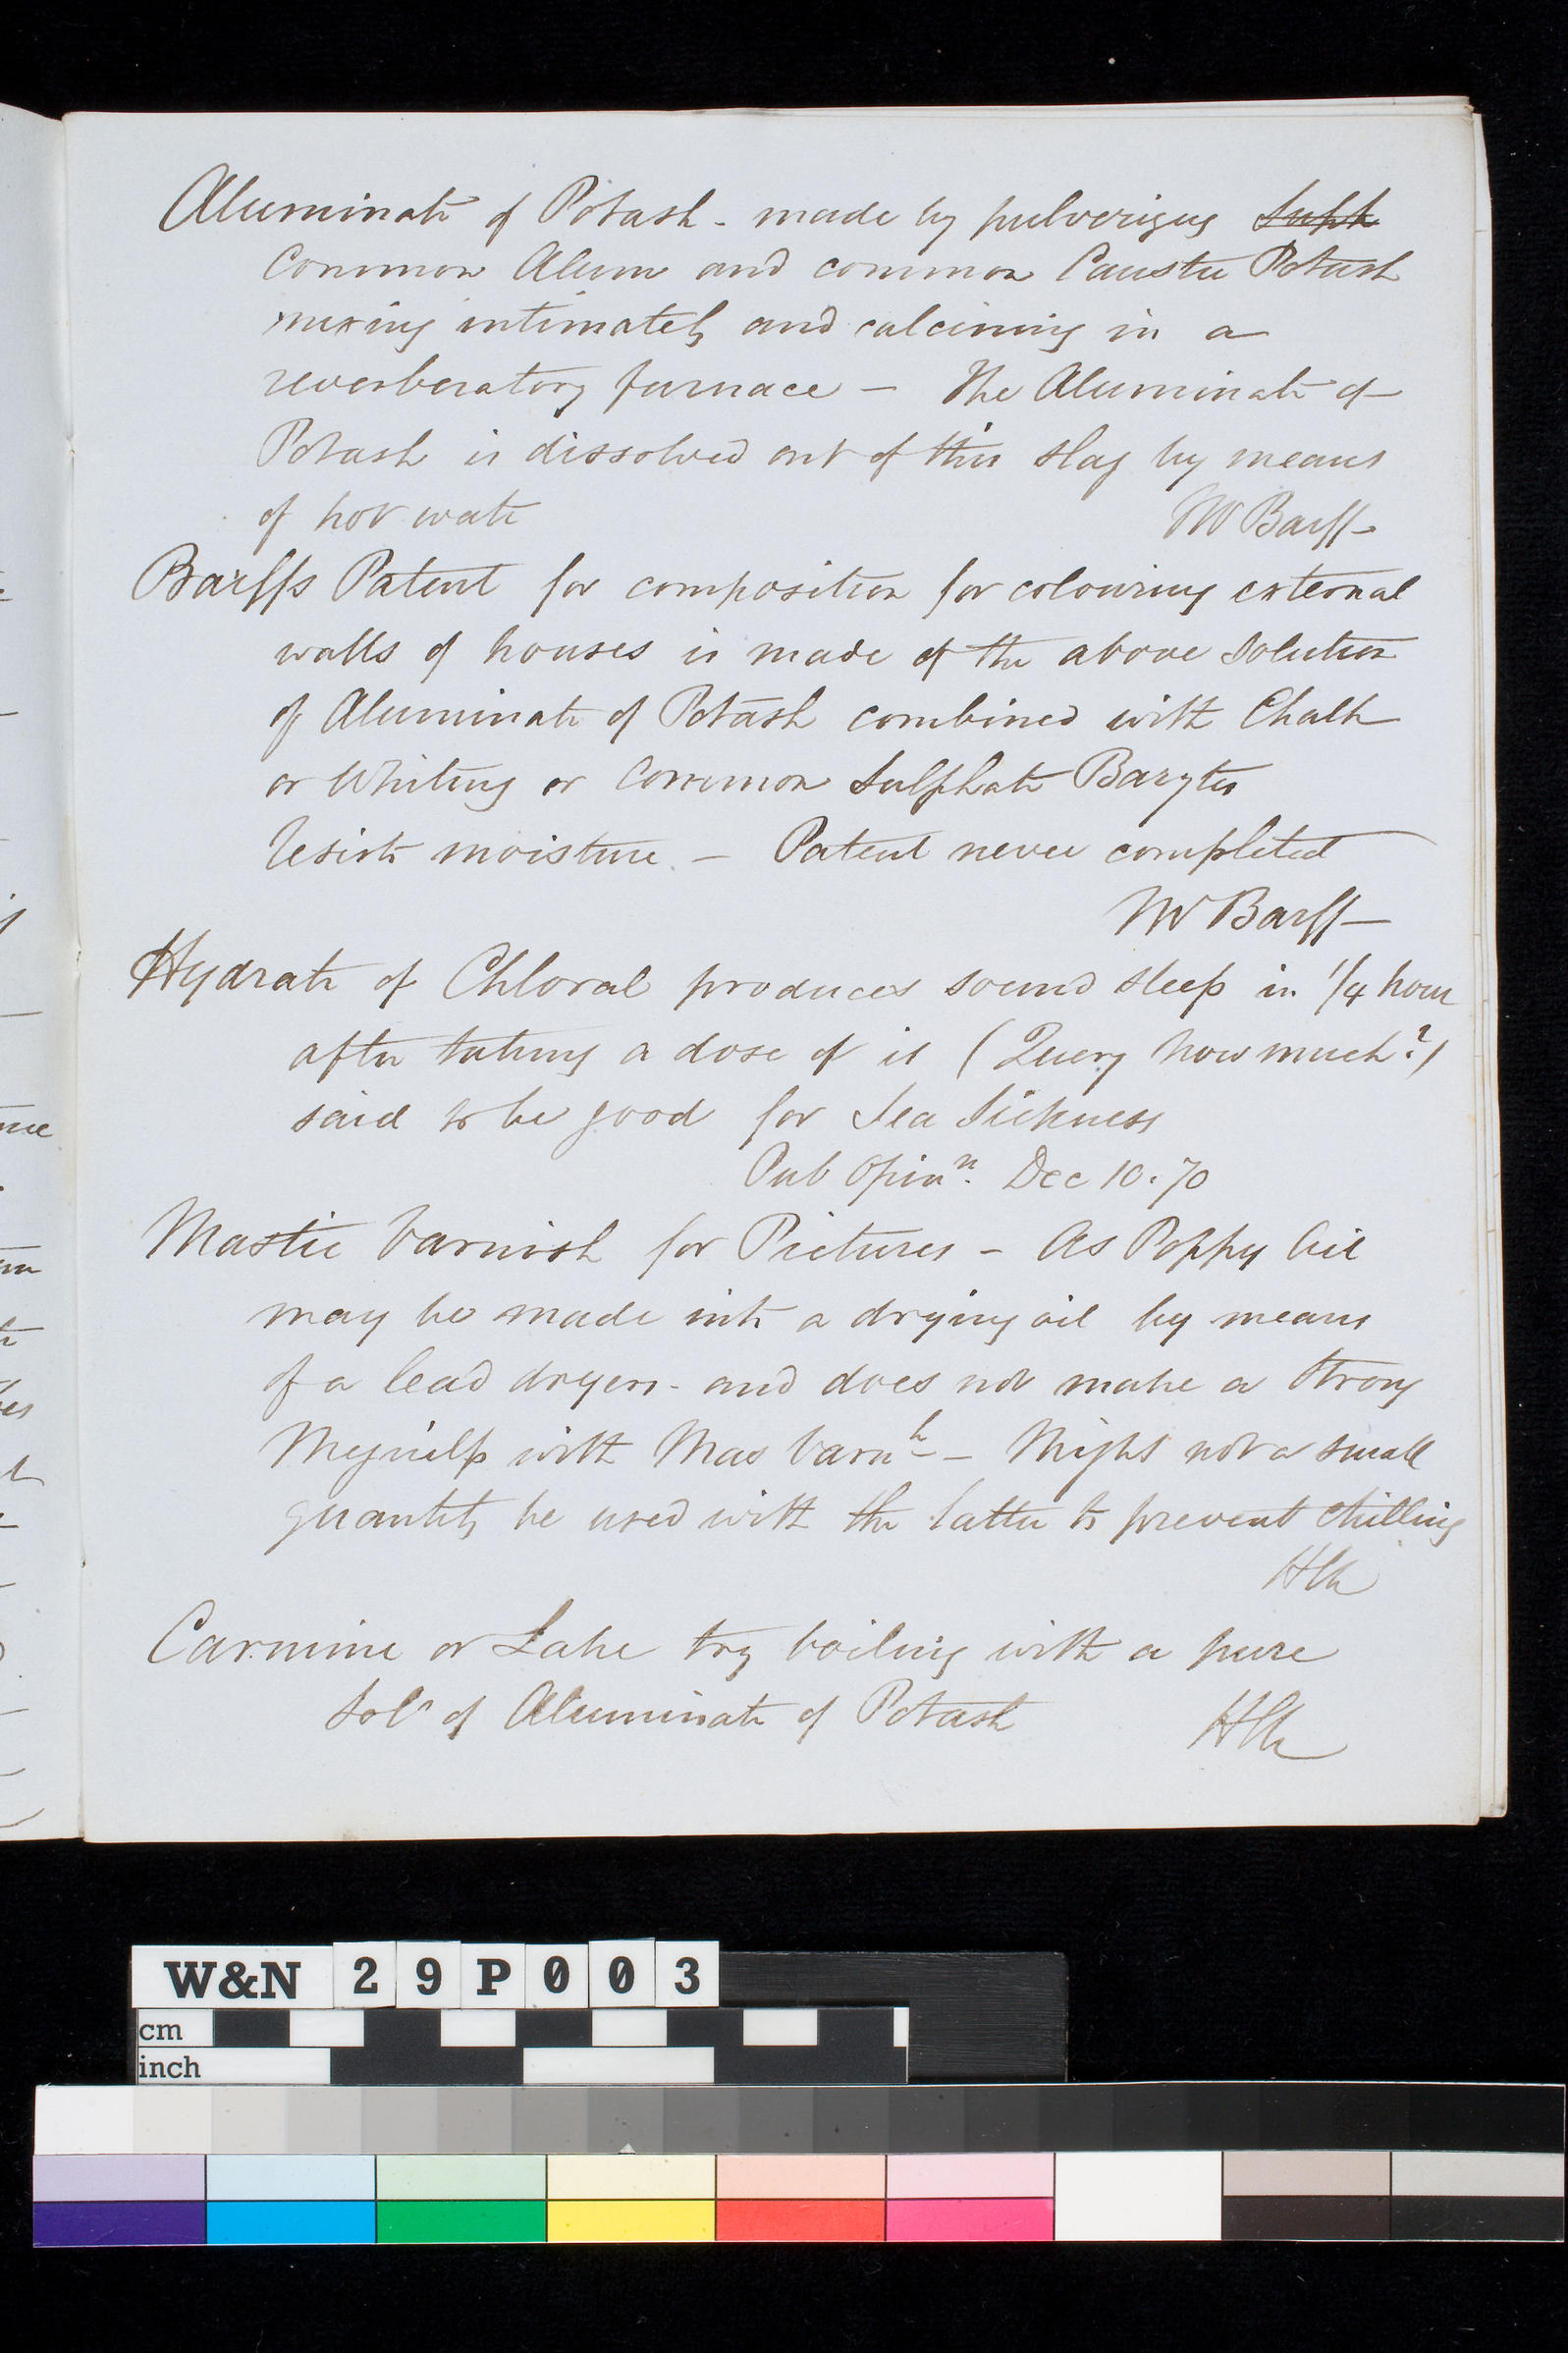 Aluminate of Potash - made by pulverizing Sulph
Common Alum and common Caustic Potash
mixing intimately and calcining in a
reverberatory furnace – The Aluminate of
Potash is dissolved out of this slag by means
of hot water
Mr Barff –
Barffs Patent for composition for colouring external
walls of houses is made of the above solution
of Aluminate of Potash combined with Chalk
or Whiting or Common Sulphate Barytes
Resists moisture. – Patent never completed
Mr Barff –
Hydrate of Chloral produces sound sleep in 1/4 hour
after taking a dose of it (Query how much?)
said to be good for Sea Sickness
Pub Opinn. Dec 10. 70
Mastic Varnish for Pictures – As Poppy Oil
may be made into a drying oil by means
of a lead dryers - and does not make a strong
Meguilp with Mas Varnh – Might not a small
quantity be used with the latter to prevent chilling
HCN
Carmine or Lake try boiling with a pure
Soln of Aluminate of Potash
HCN
W&N 29P003
cm
inch